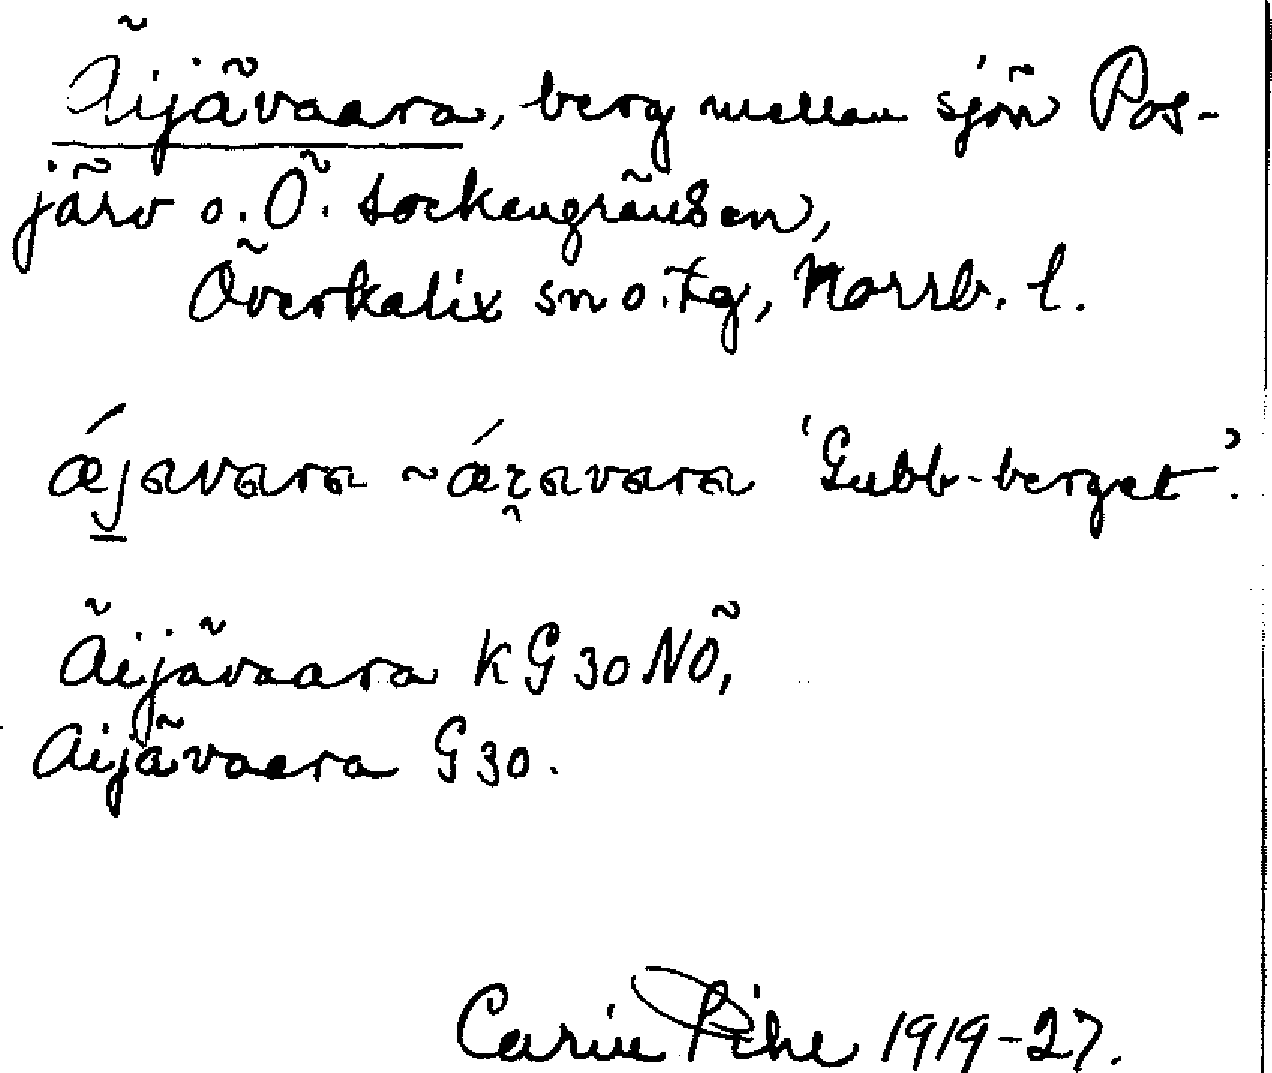 Äijävaara, berg mellan sjön Pos-
järv o. Ö. sockengränsen,
Överkalix sn o. tg, Norrb. l.
ǽjavara ~ ǽi̯avara 'Gubb-berget'.
Äijävaara KG 30 NÖ,
Aijävaara G 30.
Carin Pihl 1919-27.